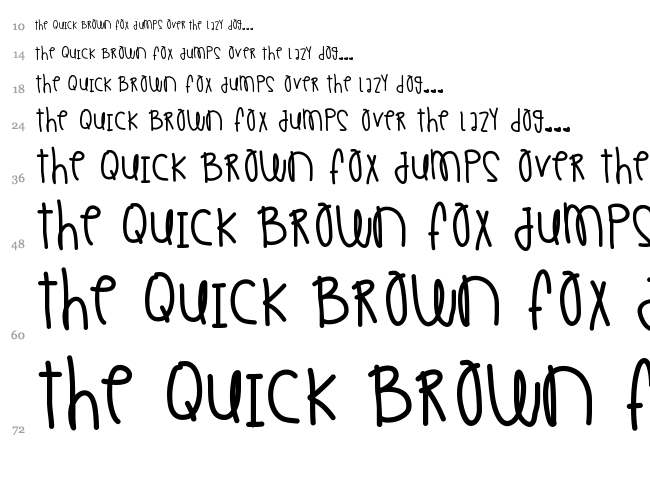 10 the QUICK BROWN fOX JUMPS OVer the LaZY dOg...
14 the QUICK BROWN fOX JUMPS OVer the LaZY dOg...
18 the QUICK BROWN fOX JUMPS OVer the LaZY dOg...
24 the QUICK BROWN fOX JUMPS OVer the LaZY dOg...
36 the QUICK BROWN fOX JUMPS OVer the
48 the QUICK BROWN fOX JUMPS
60 the QUICK BROWN fOX
72 the QUICK BROWN